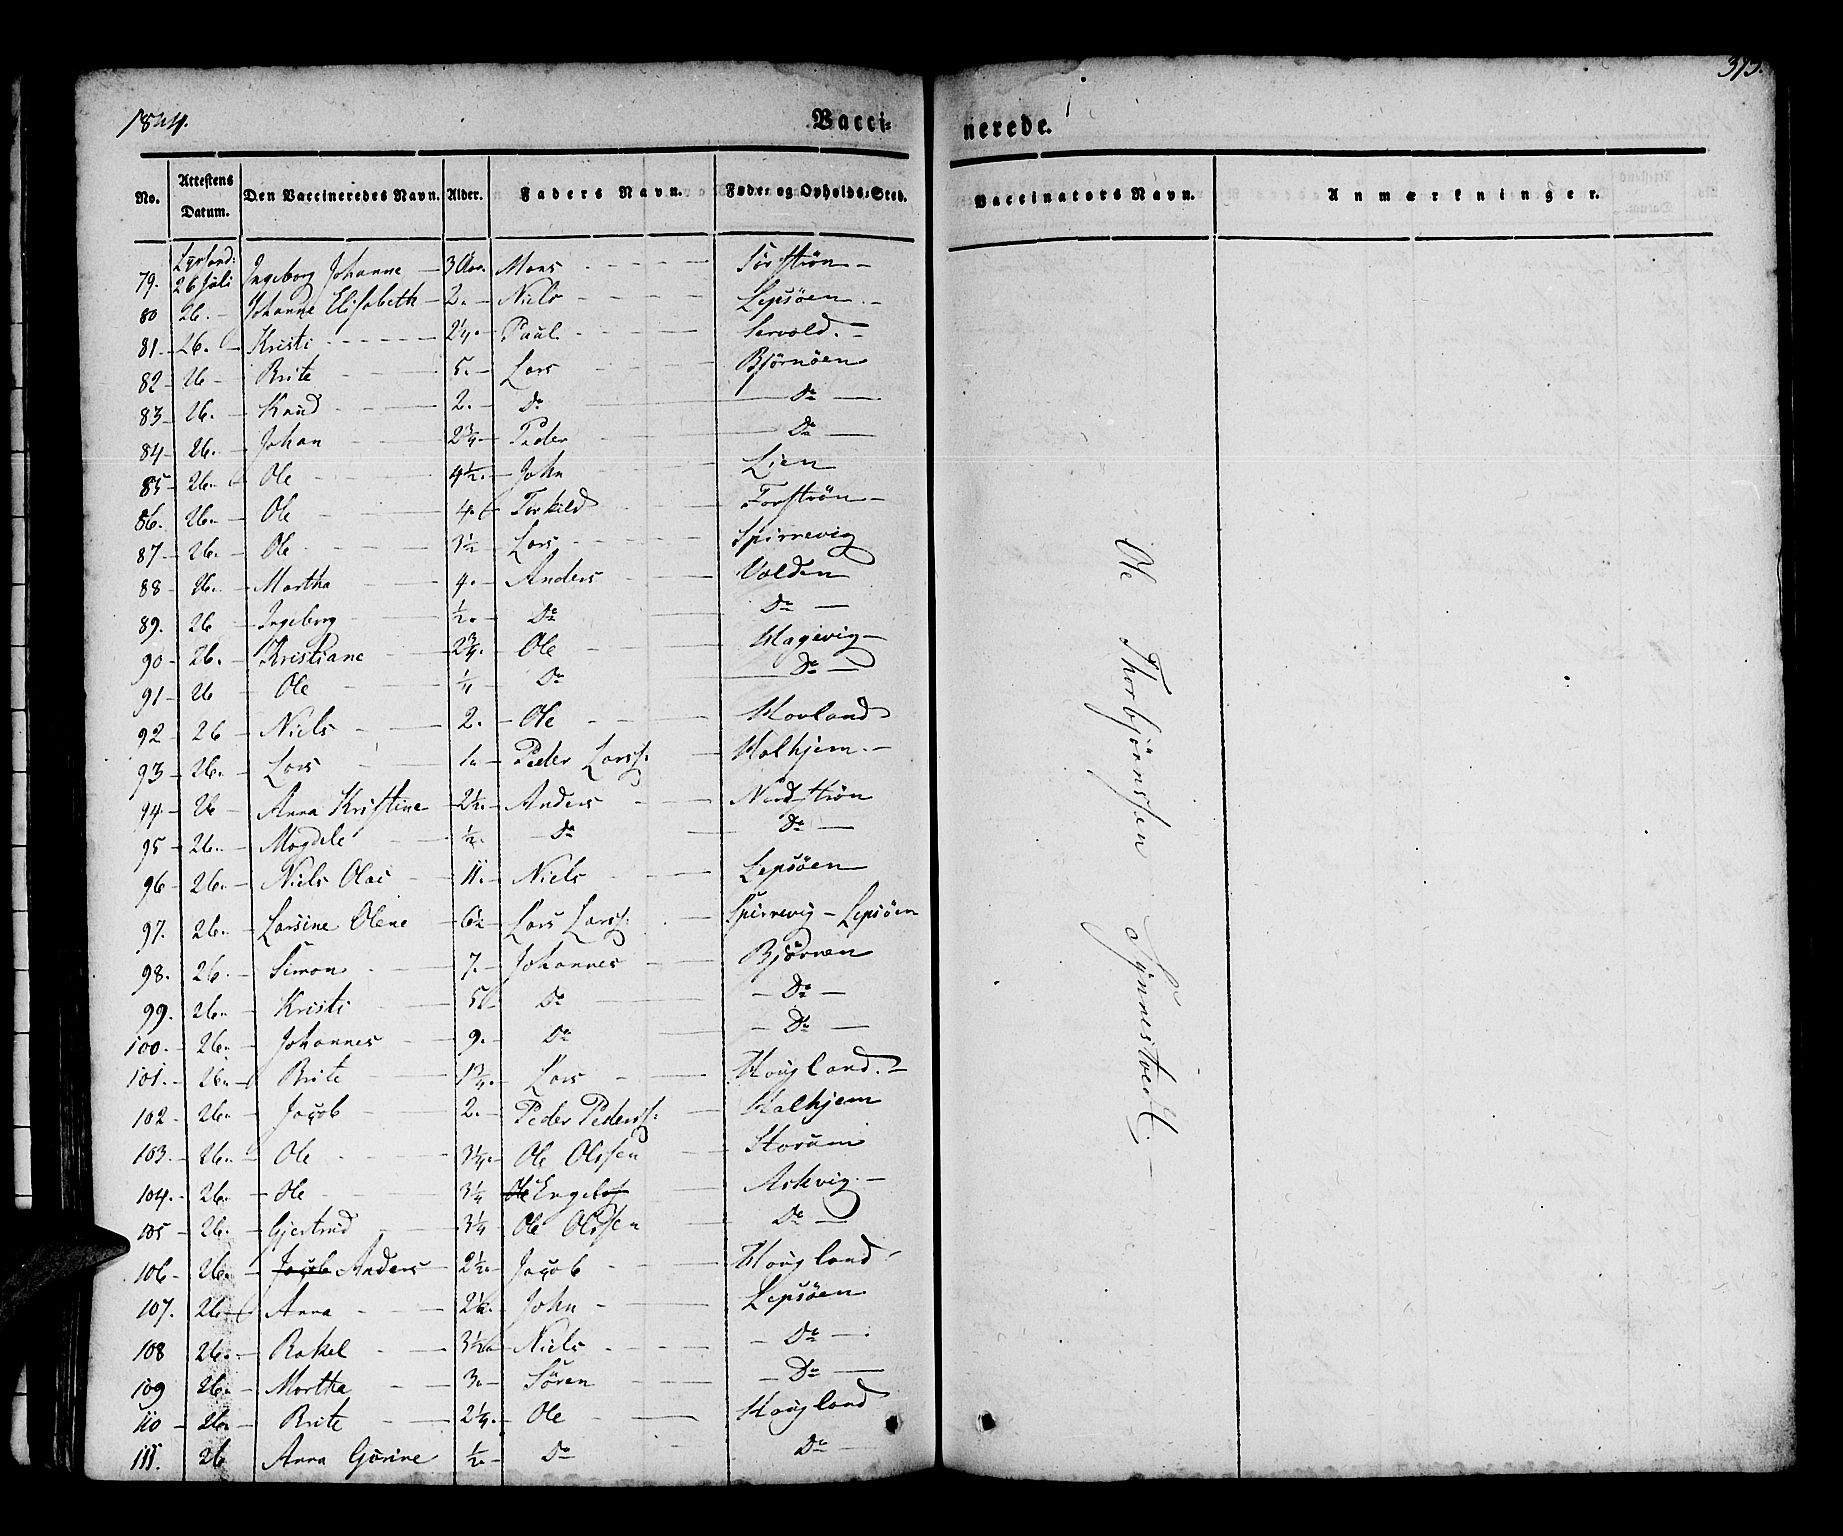 1844.
Vacci-
nerede.
No.
Attestens Datum.
Den Vaccineredes Navn.
Alder.
Faders Navn.
Føde- og Opholds-Sted.
Vaccinators Navn.
Anmærkninger.
79. 26 Juli Ingeborg Johanne - 3 Aar. Mons
80 26. - Johanne Elisabeth - 2. - Niels - Lepsöen. -
81 - 26. - Kristi - 2¼. - Paul -
82 - 26 - Brite - 5. - Lars - Björnöen
83 - 26. - Knud - 2. - Do - Do -
84 - 26. - Johan - 2¾. - Peder - Do -
85 - 26. - Ole - 4½. - John - Lien
86. - 26. - Ole - 4. Torkild - Forströn -
87. - 26. - Ole - 3½ - Lars - Spirrevig
88 - 26. - Martha - 4. - Anders - Valden
89. - 26 - Ingeborg - ½. - Do - Do -
90 - 26. - Kristiane - 2¾. - Ole - Hagevig -
91 - 26 - Ole - ¼ - Do - Do -
92 - 26 - Niels - 2. - Ole - Hovland
93 - 26. - Lars - 1. - Peder Larss: - Halhjem. -
94. - 26 - Anna Kristine - 2½. - Anders - Nordströn
95 - 26. - Magdele - ½. - Do - Do -
96 - 26. - Niels Olai - 11. - Niels - Lepsöen
97. - 26. - Larsine Olene - 6½ - Lars Larss: - Spirrevig - Lepsöen
98. - 26. - Simon - 7. - Johannes - Björnen
99. - 26. - Kristi - 5 - Do - Do -
100. - 26. - Johannes - 9. - Do - Do -
101. - 26. - Brite - 1¾. - Lars - Hougland. -
102 - 26. - Jacob - 2. - Peder Pederss: - Halhjem
103. - 26. - Ole - 3¼. - Ole Olssen - Storum
104. - 26. - Ole - 3¼ Ole Engel - Askvig. -
105 - 26. - Gjertrud - 3¼ - Ole Olssen - Do -
106 - 26. - Jacob Anders - 2½. - Jacob - Hougland -
107. - 26 - Anna - 2½. - John - Lepsöen
108 - 26. - Rakel - 3½ - Niels - Do - .
109 - 26. - Martha - 3. - Sören - Do -
110 - 26. - Brite - 2¼. - Ole - Hougland
111. 26 - Anna Gurine - ½. - Do - Do -
Ole Thorbjörnssen Synnestvedt. -